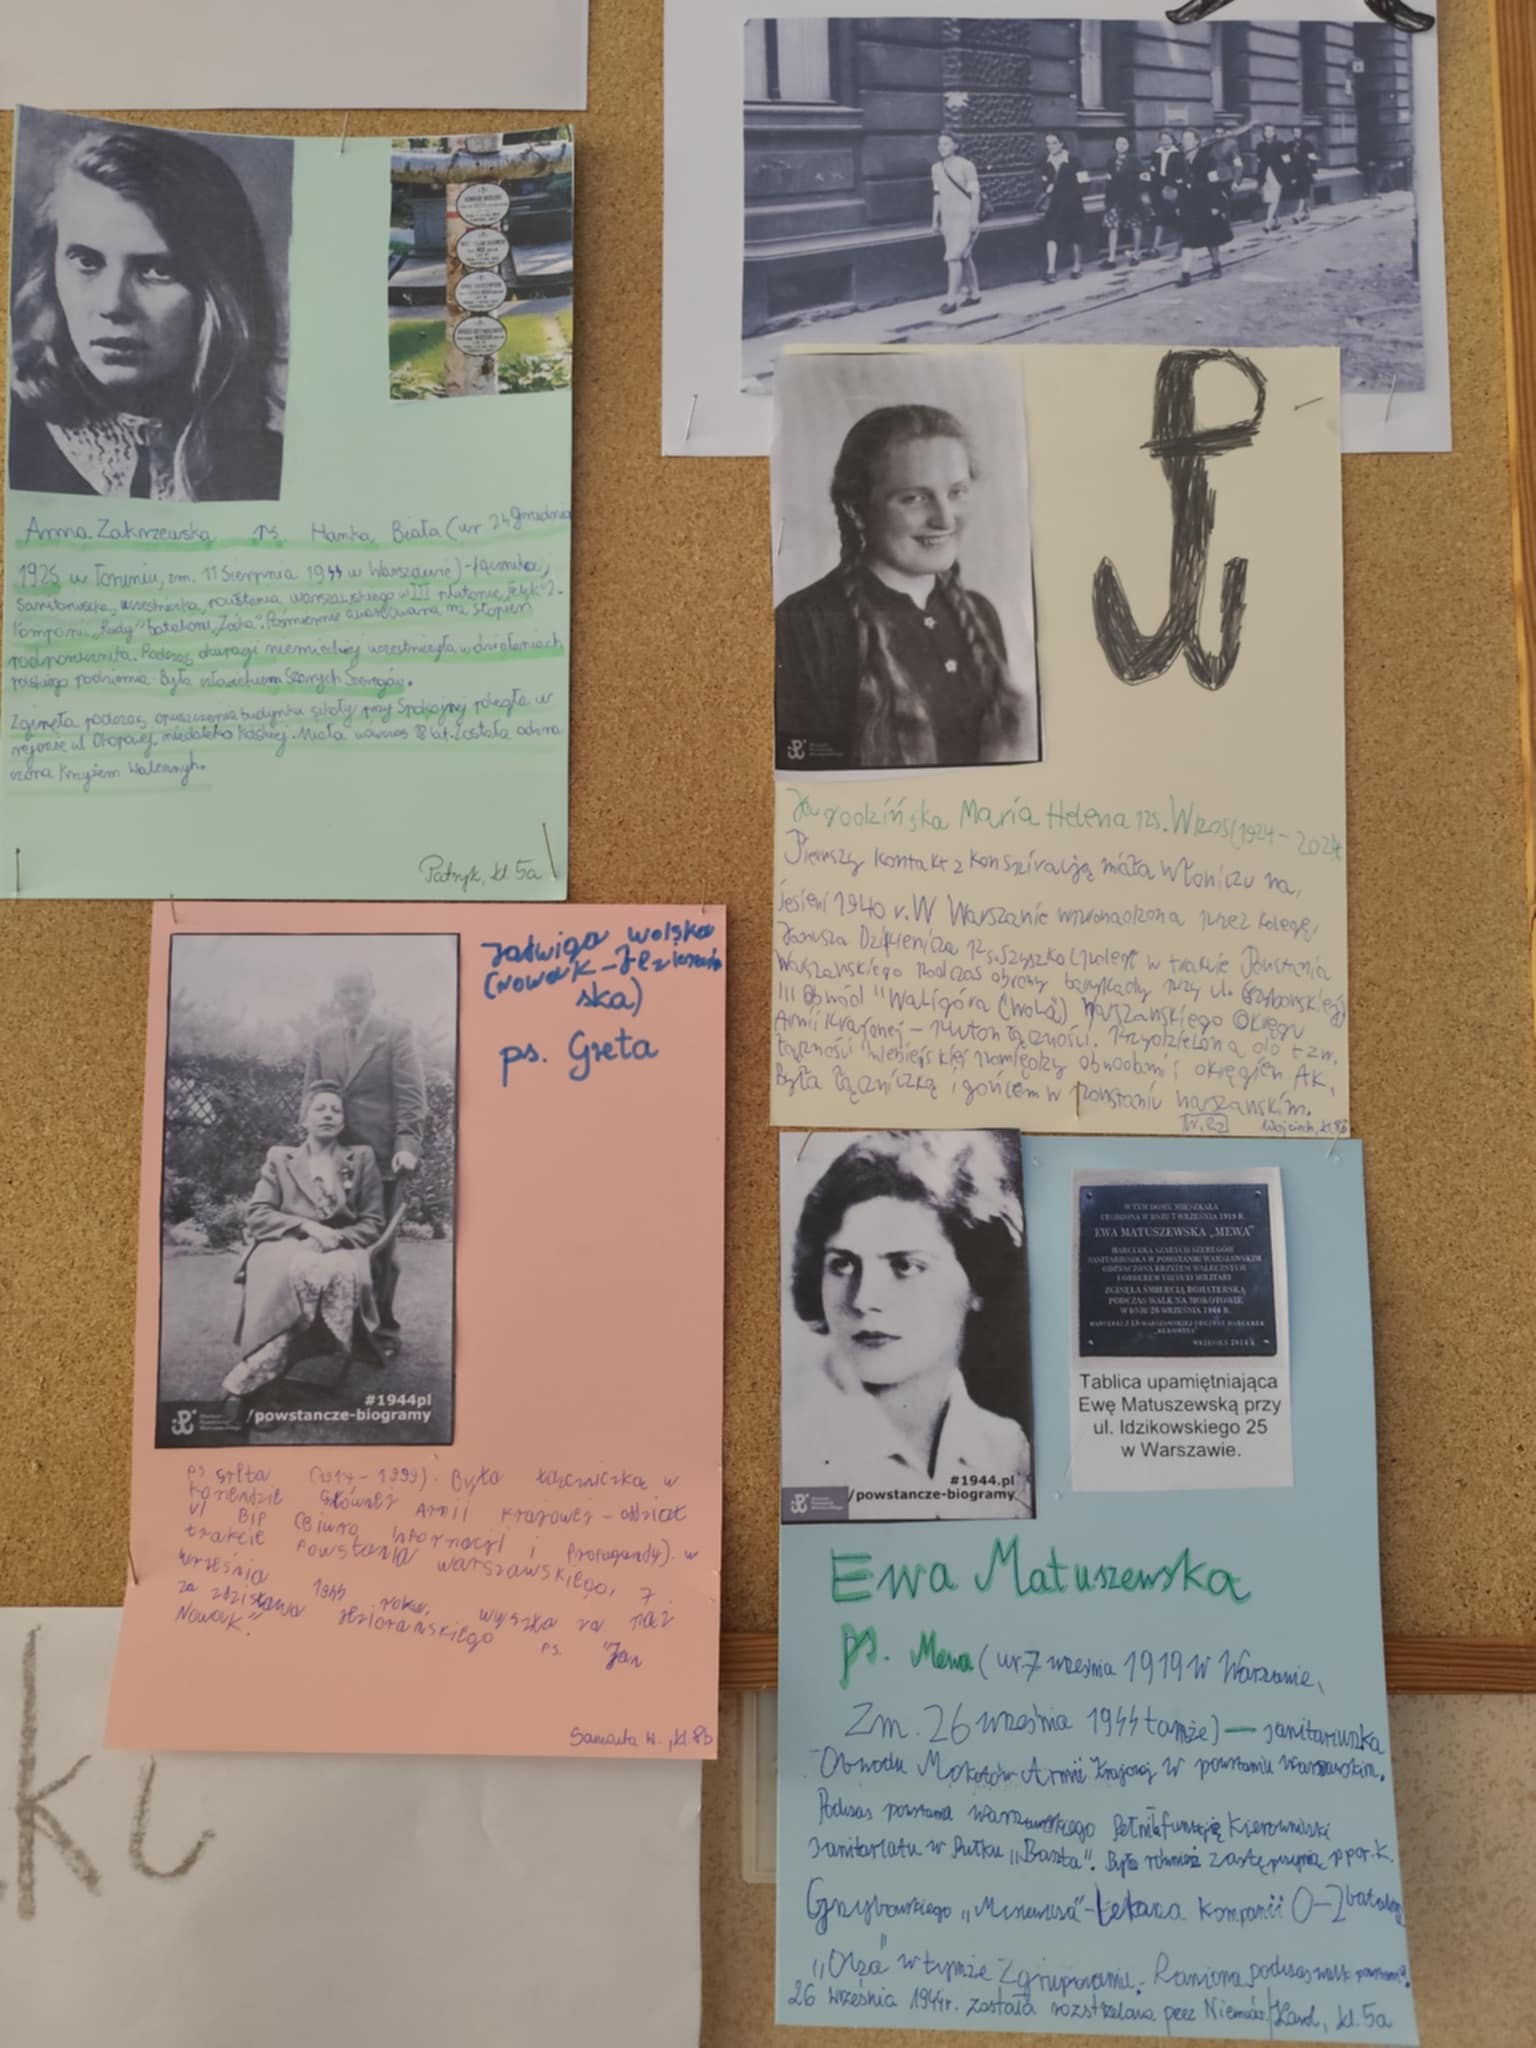 Anna Zakrzewska ps. Hanka Biała (ur 24 grudnia
1925 w Toruniu, zm. 11 Sierpnia 1944 w Warszawie) - łączniczka,
Sanitariuszka, uczestniczka powstania warszawskiego w III plutonie
kompanii „Rudy" batalionu „Zośka". Pośmiertnie awansowana na stopień
podporucznika. Podczas okupacji niemieckiej uczestniczyła w działaniach
polskiego podziemia. Była członkiem Szarych Szeregów.
Zginęła podczas opuszczenia budynku szkoły przy Spokojnej poległa w
rejonie ul Okopowej, niedaleko Kolskiej. Miała wówczas 18 lat. Została odzna
czona Krzyżem Walecznych.
Patryk, kl. 5a
Jagodzińska Maria Helena ps. Wrzos (1924 - 2024
Pierwszy kontakt z konspiracją miała w Łowiczu na
jesieni 1940 r. W Warszawie wprowadzona przez kolegę,
Janusza ps. Szyszko (poległ w trakcie Powstania
Warszawskiego podczas obrony barykady przy ul. Grzybowskiej)
III Obwód "Waligóra (Wola) Warszawskiego Okręgu
Armii Krajowej - pluton łączności. Przydzielona do tzw.
łączności pomiędzy obwodami i okręgiem AK.
Była łączniczką i gońcem w powstaniu warszawskim.
Wojciech, kl. 8b
Jadwiga Wolska
(Nowak - Jeziorań
ska)
ps. Greta
#1944pl
/powstancze-biogramy
ps Greta (1914 - 1999). Była łączniczką w
Komendzie Głównej Armii Krajowej - oddział
VI BIP (Biuro Informacji i Propagandy). w
trakcie Powstania warszawskiego, 7
września 1944 roku, wyszła za mąż
za zdzisława Jeziorańskiego ps. "Jan
Nowak".
Samanta W., kl. 8b
W TYM DOMU MIESZKAŁA
URODZONA W DNIU 7 WRZEŚNIA 1919 R.
EWA MATUSZEWSKA „MEWA"
HARCERKA SZARYCH SZEREGÓW
SANITARIUSZKA W POWSTANIU WARSZAWSKIM
ODZNACZONA KRZYŻEM WALECZNYCH
I ORDEREM VIRTUTI MILITARI
ZGINĘŁA ŚMIERCIĄ BOHATERSKĄ
PODCZAS WALK NA MOKOTOWIE
W DNIU 26 WRZEŚNIA 1944 R.
WRZESIEŃ 2014 R.
Tablica upamiętniająca
Ewę Matuszewską przy
ul. Idzikowskiego 25
w Warszawie.
#1944.pl
/powstancze-biogramy
Ewa Matuszewska
ps. Mewa (ur. 7 września 1919 w Warszawie,
Zm. 26 września 1944 tamże) — sanitariuszka
Obwodu Mokotów Armii Krajowej w powstaniu warszawskim.
Podczas powstania warszawskiego pełniła funkcję kierowniczki
sanitariatu w Pułku „Baszta". Była również zastępczynią ppor. K.
Grzybowskiego - Lekarza kompanii O-2 batalionu
„Olza" w tymże Zgrupowaniu. Raniona podczas walk
26 września 1944r. została rozstrzelana przez Niemców. Karol, kl. 5a